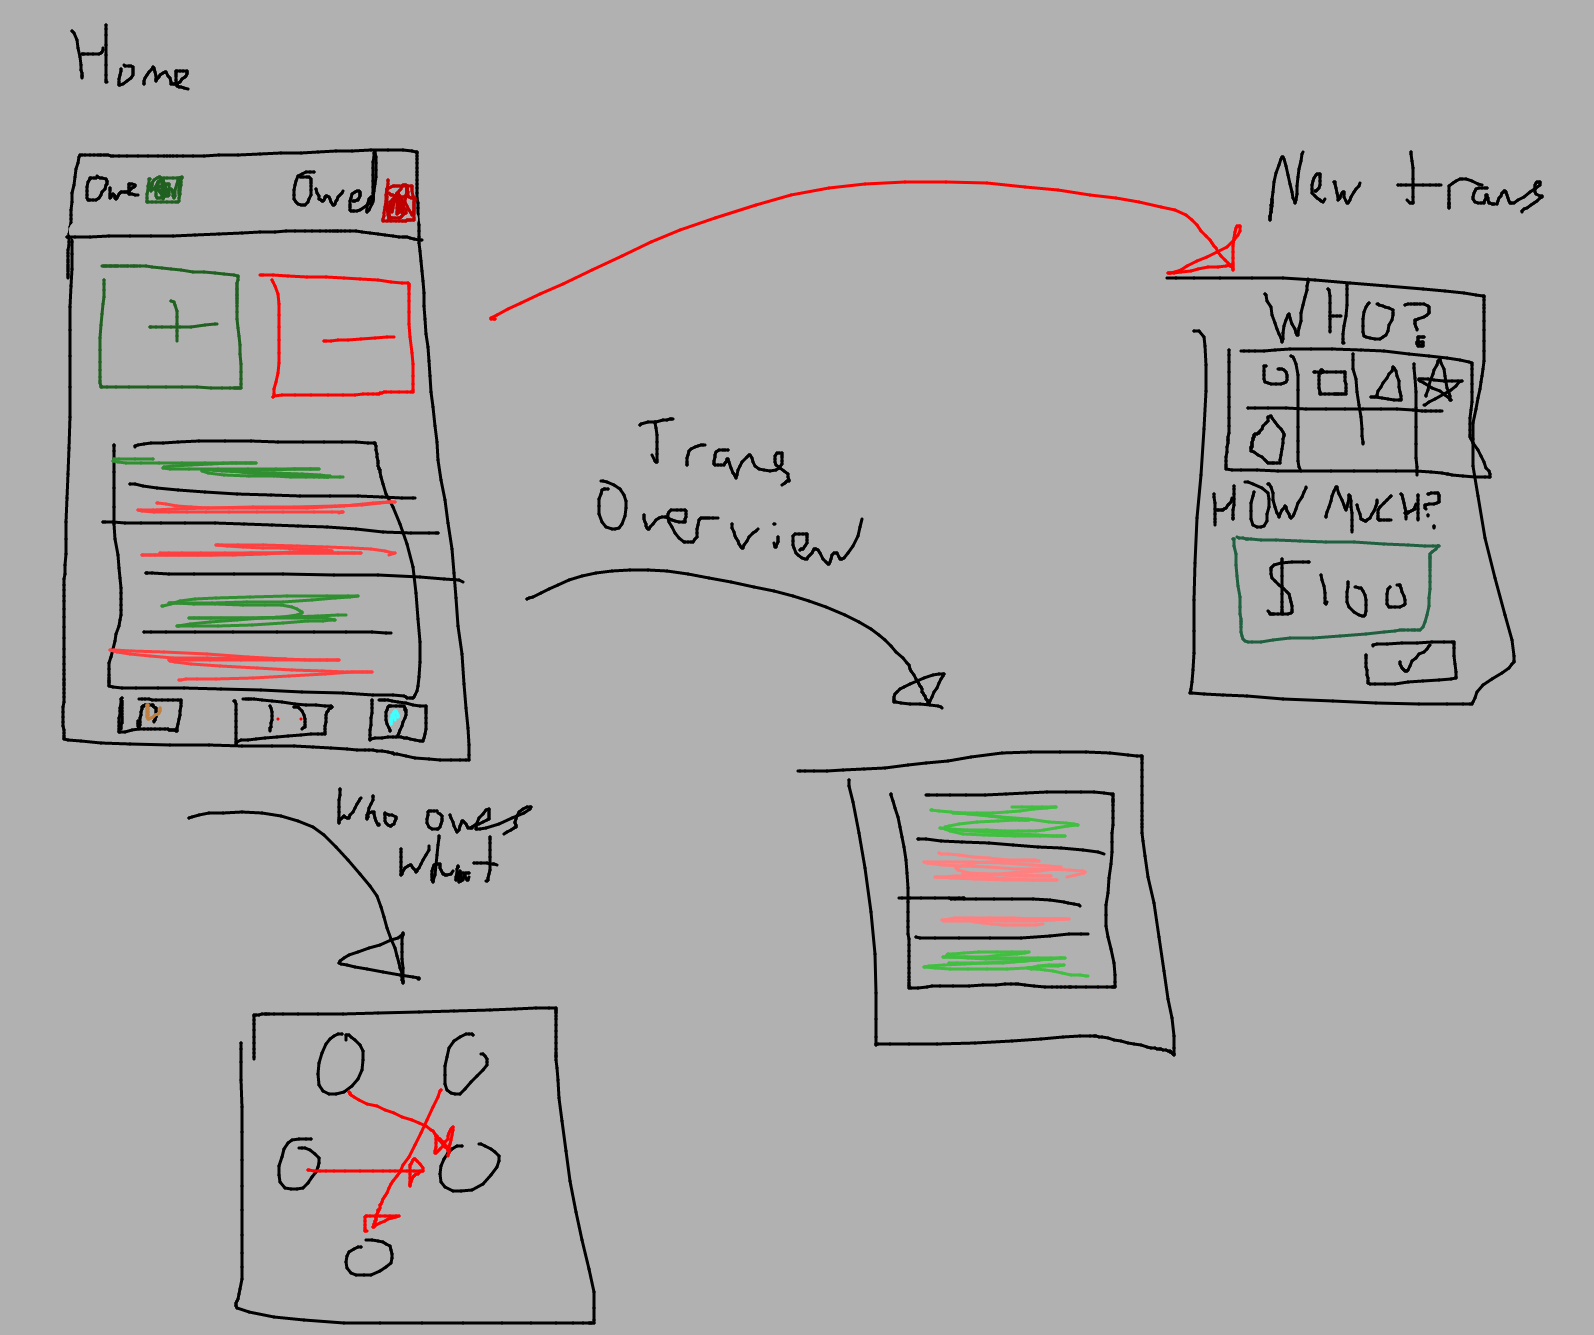 Home
Owe Owed
+ —
New trans
WHO?
HOW MUCH?
$100
Trans
Overview
Who owes
what